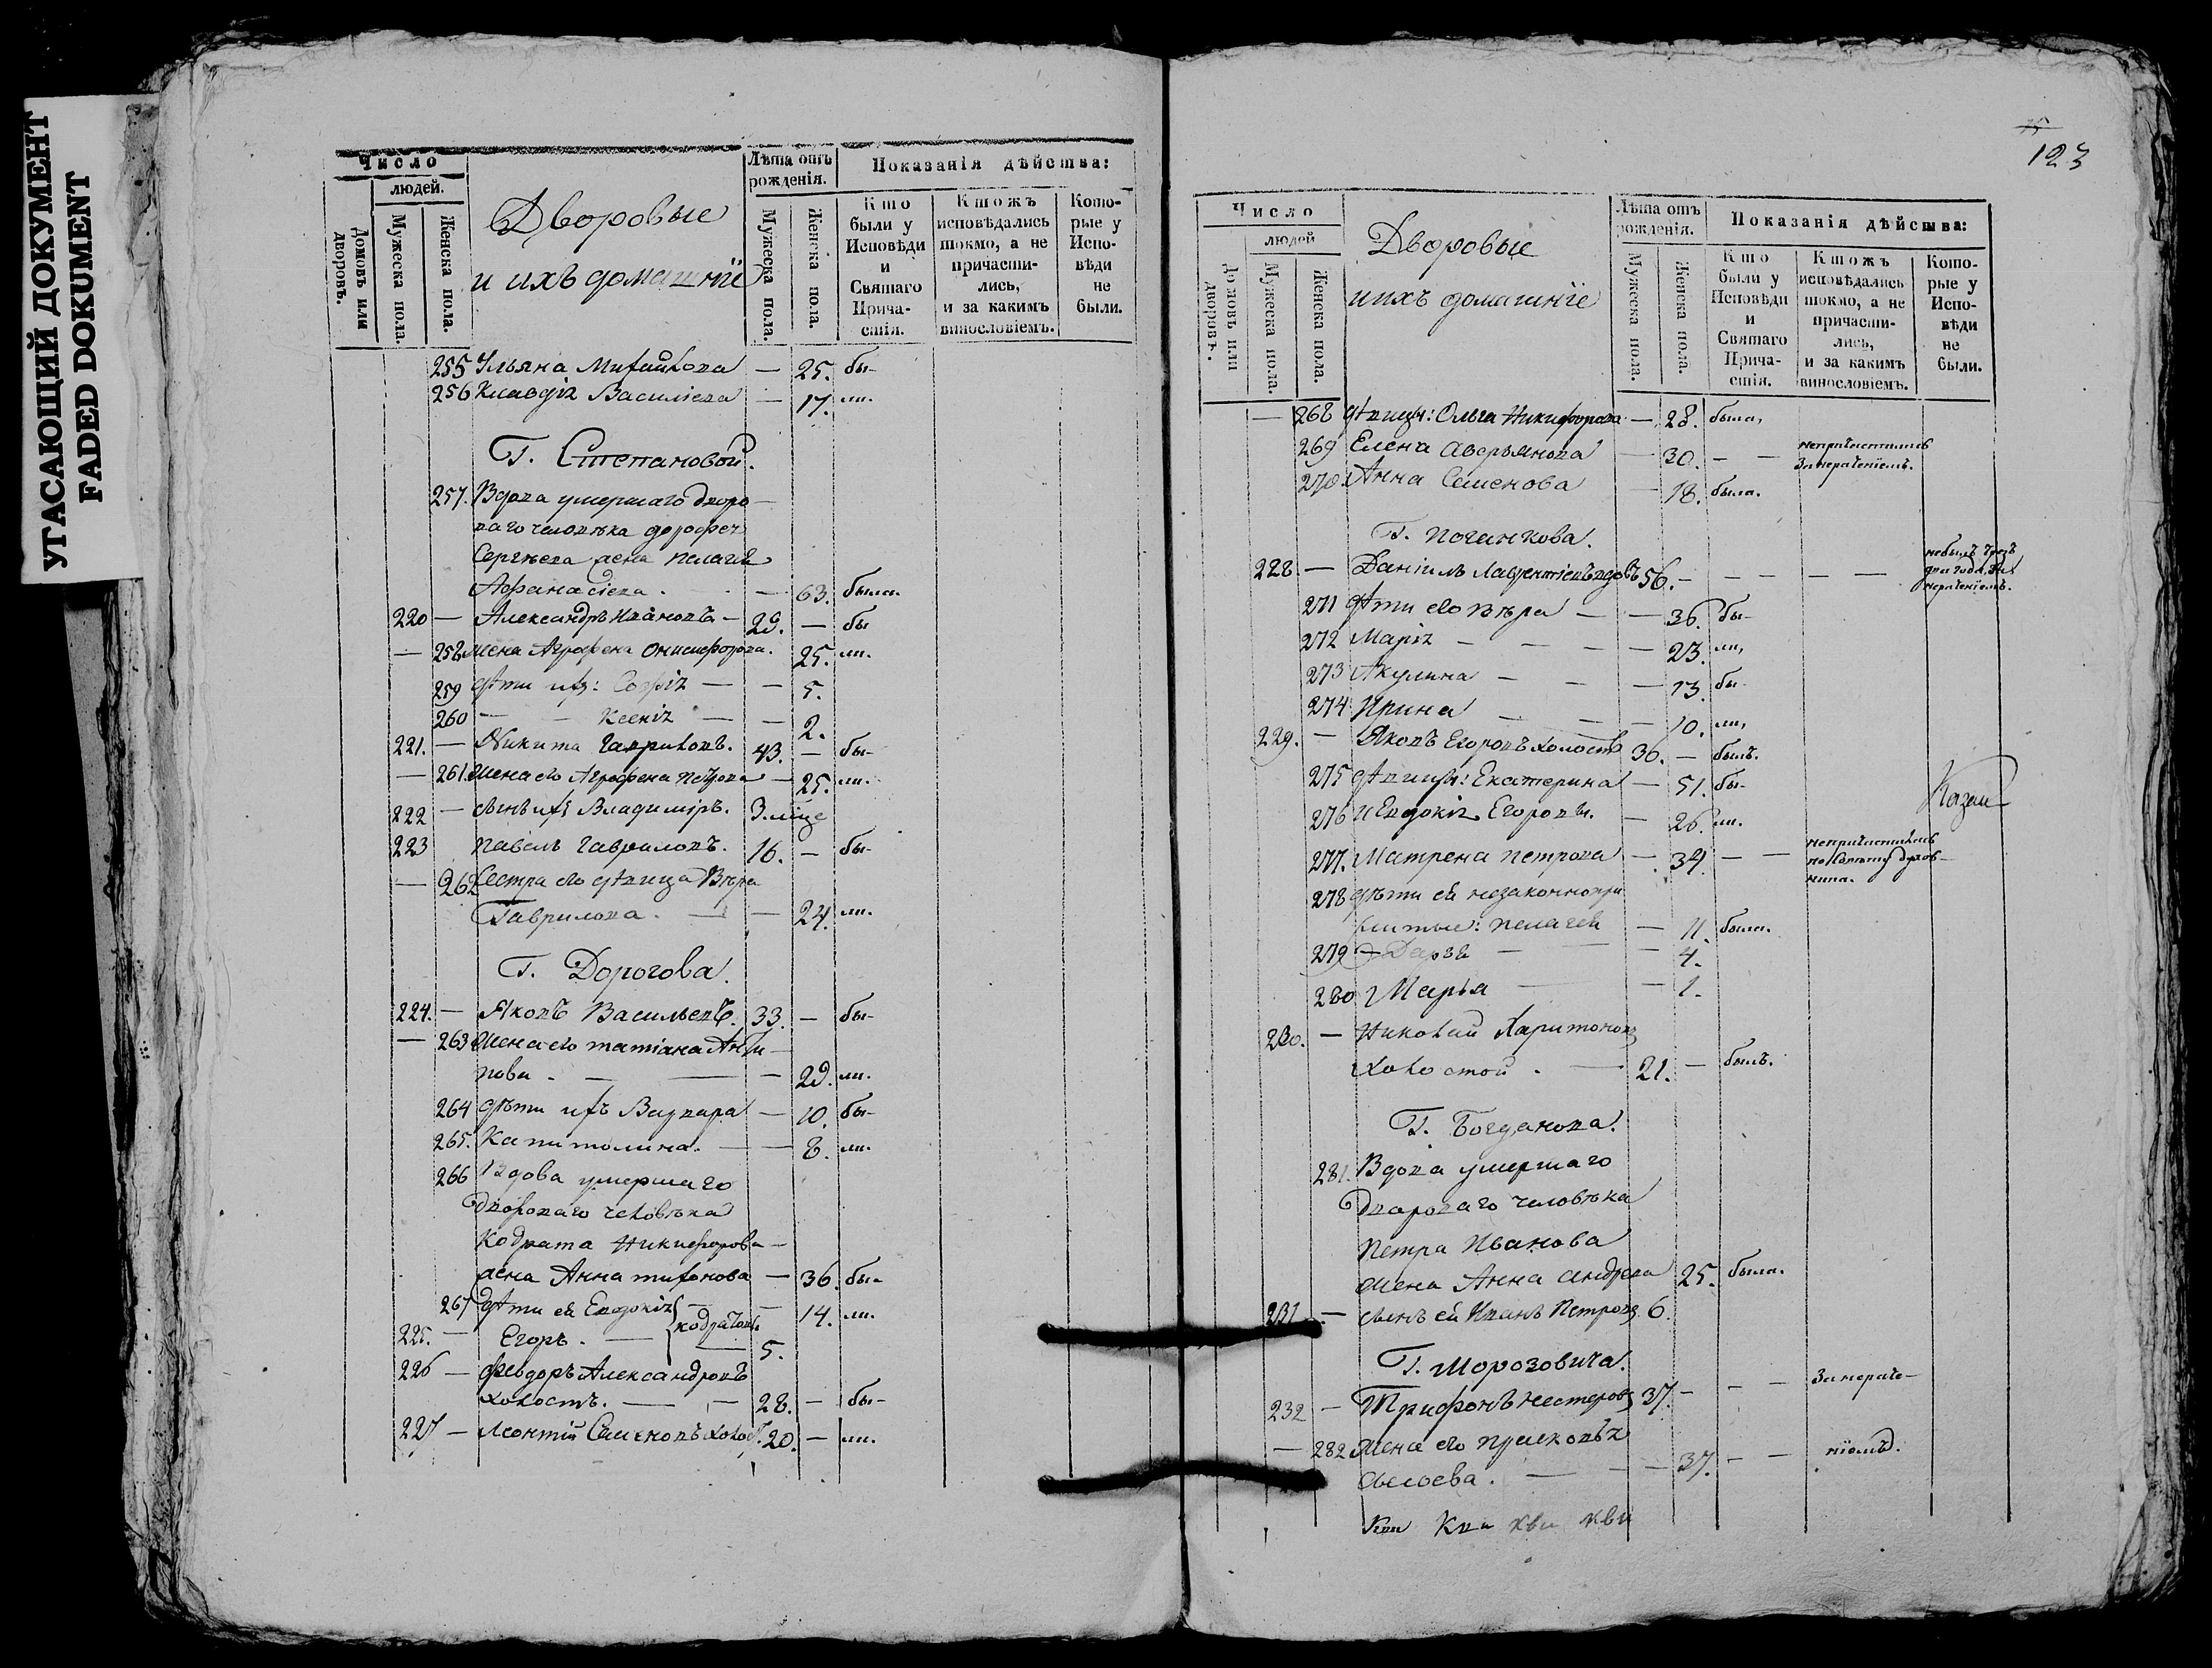 УГАСАЮЩИЙ ДОКУМЕНТ
FADED DOKUMENT
Число
людей.
Домовъ или дворовъ.
Мужеска пола.
Женска пола.
Дворовые
и ихъ домашнїе
Лѣта отъ рожденія.
Мужеска пола.
Женска пола.
Показанія дѣйства:
Кто были у Исповѣди и Святаго Прича-стія.
Ктожъ исповѣдались токмо, а не причасти-лись, и за какимъ винословіемъ.
Кото-рые у Испо-вѣди не были.
255 Ульяна Михайлова — 25. бы-
256 Клавдія Василіева — 17. ли.
Г. Степановой.
257. Вдова умершаго дворо
ваго человѣка дорофея
Сергѣева жена Пелагія
Афанасіева. — 63. была.
220 — Александръ Ивановъ — 29. — бы
— 258 жена Аграфена Онисифорова. 25. ли.
259 дѣти ихъ: Софія — — 5.
260 — — Ксенія — — 2.
221. — Никита Гавриловъ. 43. — бы-
— 261. Жена его Аграфена Петрова — 25. ли.
222 — сынъ ихъ Владиміръ. 3. мѣце
223 Павелъ Гавриловъ. 16. — бы-
— 262 Сестра его дѣвица Вѣра
Гаврилова. — — 24. ли.
Г. Дорогова.
224. — Яковъ Васильевъ. 33. — бы-
— 263 Жена его татіана Анти
пова. — — — 29. ли.
264 дѣти ихъ Варвара — 10. бы-
265. Капитолина. — — 8. ли.
266 Вдова умершаго
Двороваго человѣка
Кодрата Никифорова —
жена Анна тихонова — 36. бы-
267 дѣти ея Евдокія — — 14. ли.
Кодратовы.
225. — Егоръ. — — 5.
226 — Феодоръ Александровъ
холостъ. — — 28. — бы-
227 — Леонтій Семеновъ холос. 20. — ли.
123
Число
людей
Домовъ или дворовъ.
Мужеска пола.
Женска пола.
Дворовые
и ихъ домашнїе
Лѣта отъ рожденія.
Мужеска пола.
Женска пола.
Показанія дѣйства:
Кто были у Исповѣди и Святаго Прича-стія.
Ктожъ исповѣдались токмо, а не причасти-лись, и за какимъ винословіемъ.
Кото-рые у Испо-вѣди не были.
— 268 дѣвицы: Ольга Никифорова — 28. была,
269 Елена Аверьянова — 30. — — непричастилась
За нераченіемъ.
270. Анна Семенова — 18. была.
Г. Поганкова.
228 — Даніилъ Лаврентіевъ вдовъ 56. — — — — — небылъ чрезъ
два года За
нераченіемъ.
271 дѣти его Вѣра — — 36. бы-
272 Марія — — — — 23. ли,
273 Акулина — — — 13. бы-
274 Ирина — — — 10. ли,
229. — Яковъ Егоровъ холостъ 36. — былъ.
275 дѣвицы: Екатерина — 51. бы-
276 и Евдокія Егоровы. — 26. ли.
Казан
277. Матрена Петрова — 34. — — непричастилась
по Совѣту духов-
ника.
278 дѣти ея незаконнопри
житые: Пелагея — 11. была.
279 — Дарья — — 4.
280 Марья — — 1.
230. — Николай Харитоновъ
Холостой. — 21. — былъ.
Г. Богданова.
281. Вдова умершаго
Двороваго человѣка
Петра Иванова
жена Анна андреева 25. была.
231 — сынъ ея Иванъ Петровъ 6.
Г. Морозовича.
232 — Трифонъ Нестеровъ 37. — — — За нераче-
— 282 Жена его Прасковья — 37. — — ніемъ.